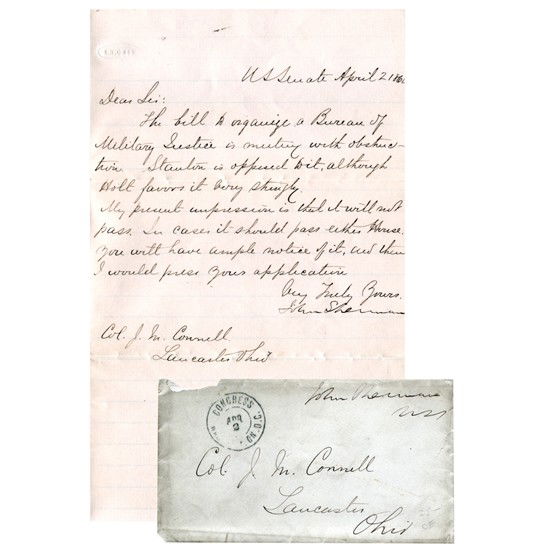 US Senate April 2 186
Dear Sir:
The bill to organize a Bureau of
Military Justice is meeting with obstruc-
tion. Stanton is opposed to it, although
Holt favors it very strongly.
My present impression is that it will not
pass. In cases it should pass either House.
You will have ample notice of it, and then
I would press your application
Very Truly Yours.
John Sherman
Col. J. M. Connell
Lancaster Ohio
John Sherman
USS
CONGRESS
APR
2
Col. J. M. Connell
Lancaster
Ohio